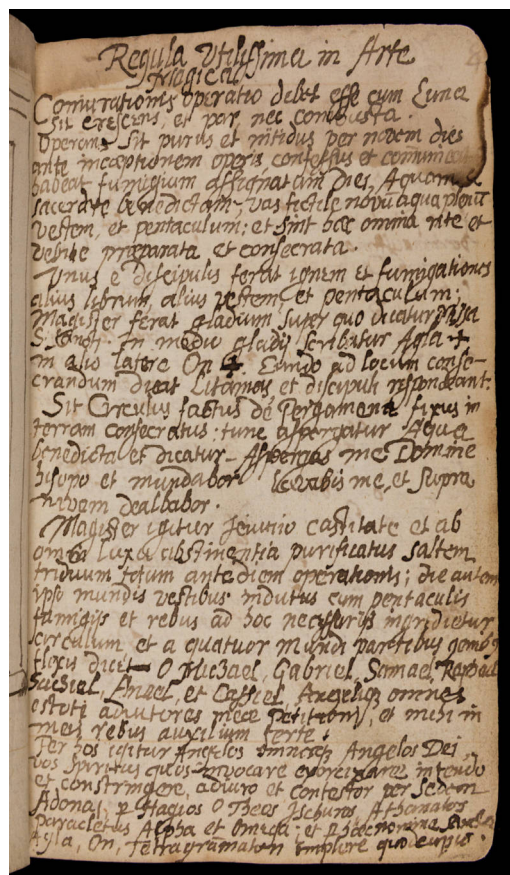 Regula Utilissima in Arte
Magica
Coniurationis operatio debet esse cum Luna
sit crescens, et par nec combusta.
Operans sit purus et nitidus per novem dies
ante inceptionem operis confessus et communicat
habeat fumigium assignatam Dies, Aquam a
sacerdote benedictam, vas fictile novũ aqua plenũ
vestem, et pentaculum; et sint hæc omnia rite et
præparata et consecrata.
Unus e discipulis ferat ignem et fumigationes
alius librum, alius vestem, et pentaculum;
Magister ferat gladium super quo dicatur Missa
S. In medio gladij scribatur Agla ✠
in alio latere On ✠. Eundo ad locum conse-
crandum dicat Litanias et discipuli respondeant:
Sit Circulus factus de Pergamena fixus in
terram consecratus: tunc aspergatur Aqua
benedicta et dicatur - Asperges me Domine
hisopo et mundabor lavabis me, et supra
nivem dealbabor.
Magister igitur jeiunio castitate et ab
omni luxu abstinentia purificatus saltem
triduum totum ante diem operationis; die autem
ipso mundis vestibus indutus cum pentaculis
fumigijs et rebus ad hoc necessarijs ingrediatur
circulum et a quatuor mundi partibus
flexis dicit - O Michael, Gabriel, Samael, Raphael
Sachiel, Anael, et Cassiel, Angeliq̃ omnes
estote adiutores meæ Petitioni, et mihi in
meis rebus auxilium ferte.
Per hos igitur Angelos omnesq̃ Angelos Dei
vos spiritus quos invocare exorcizare intendo
et constringere, adiuro et contestor per Sedem
Adonai, p Hagios O Theos Ischuros Athanatos
Paracletus Alpha et Omega; et p hæc nomina
Agla, On, Tetragramaton implere quo cupio.